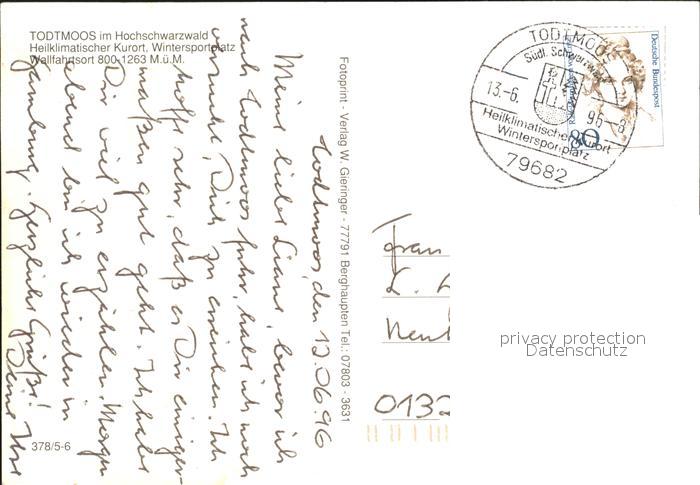 TODTMOOS im Hochschwarzwald
Heilklimatischer Kurort, Wintersportplatz
Wallfahrtsort 800-1263 M.ü.M.
Todtmoos, den 12.06.96
Meine liebe Liane, bevor ich
nach Todtmoos fuhr, habe ich noch
versucht, Dich zu erreichen. Ich
hoffe sehr, daß es Dir einiger-
maßen gut geht. Ich habe
Dir viel zu erzählen. Morgen
abend bin ich wieder in
Hamburg. Herzliche Grüße!
Deine
378/5-6
Fotoprint - Verlag W. Gieringer - 77791 Berghaupten Tel.: 07803 - 3631
TODTMOOS
Südl. Schwarzwald
13.-6. 96.-8
Heilklimatischer Kurort
Wintersportplatz
79682
Deutsche Bundespost
80
Frau
0132
privacy protection
Datenschutz